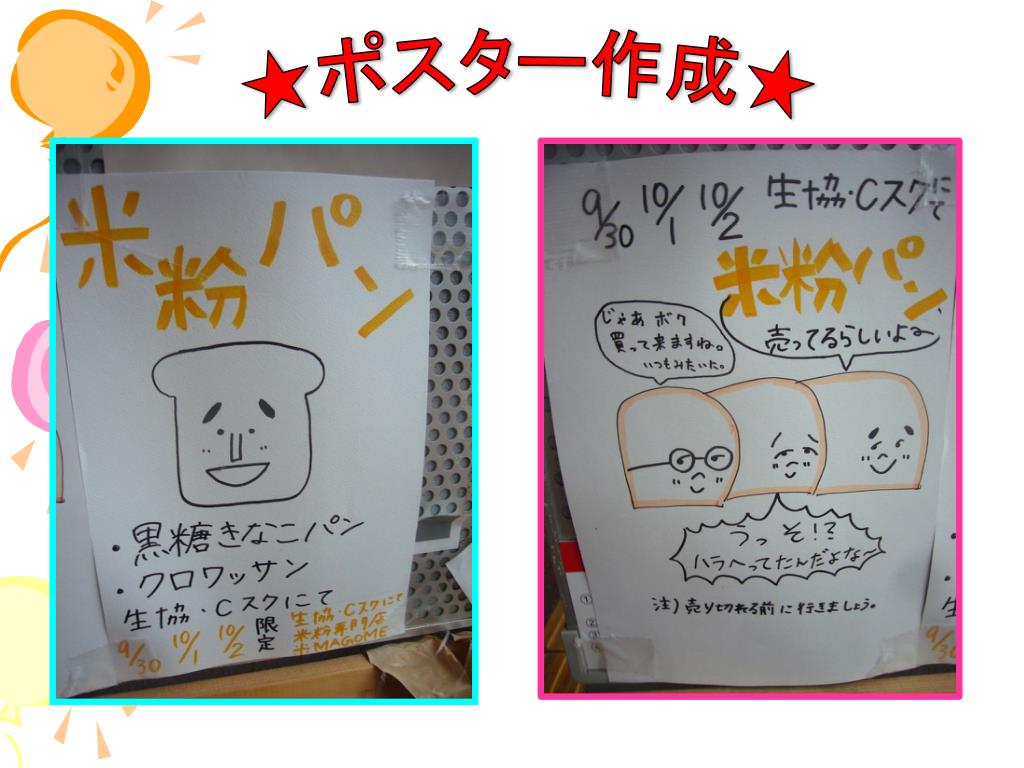 ★ポスター作成★
米粉パン
・黒糖きなこパン
・クロワッサン
生協・Cスクにて
9/30 10/1 10/2 限定
生協・Cスクにて
米粉専門店
米MAGOME
9/30 10/1 10/2 生協・Cスクにて
米粉パン、
売ってるらしいよ〜
じゃあボク
買って来ますね。
いつもみたいに。
うっそ!?
ハラへってたんだよな〜
注)売り切れる前に行きましょう。